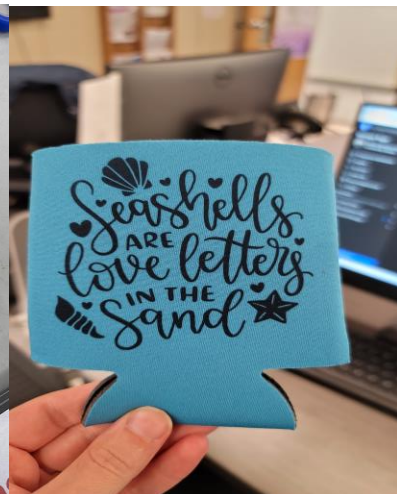 Seashells
ARE
love letters
IN THE
Sand